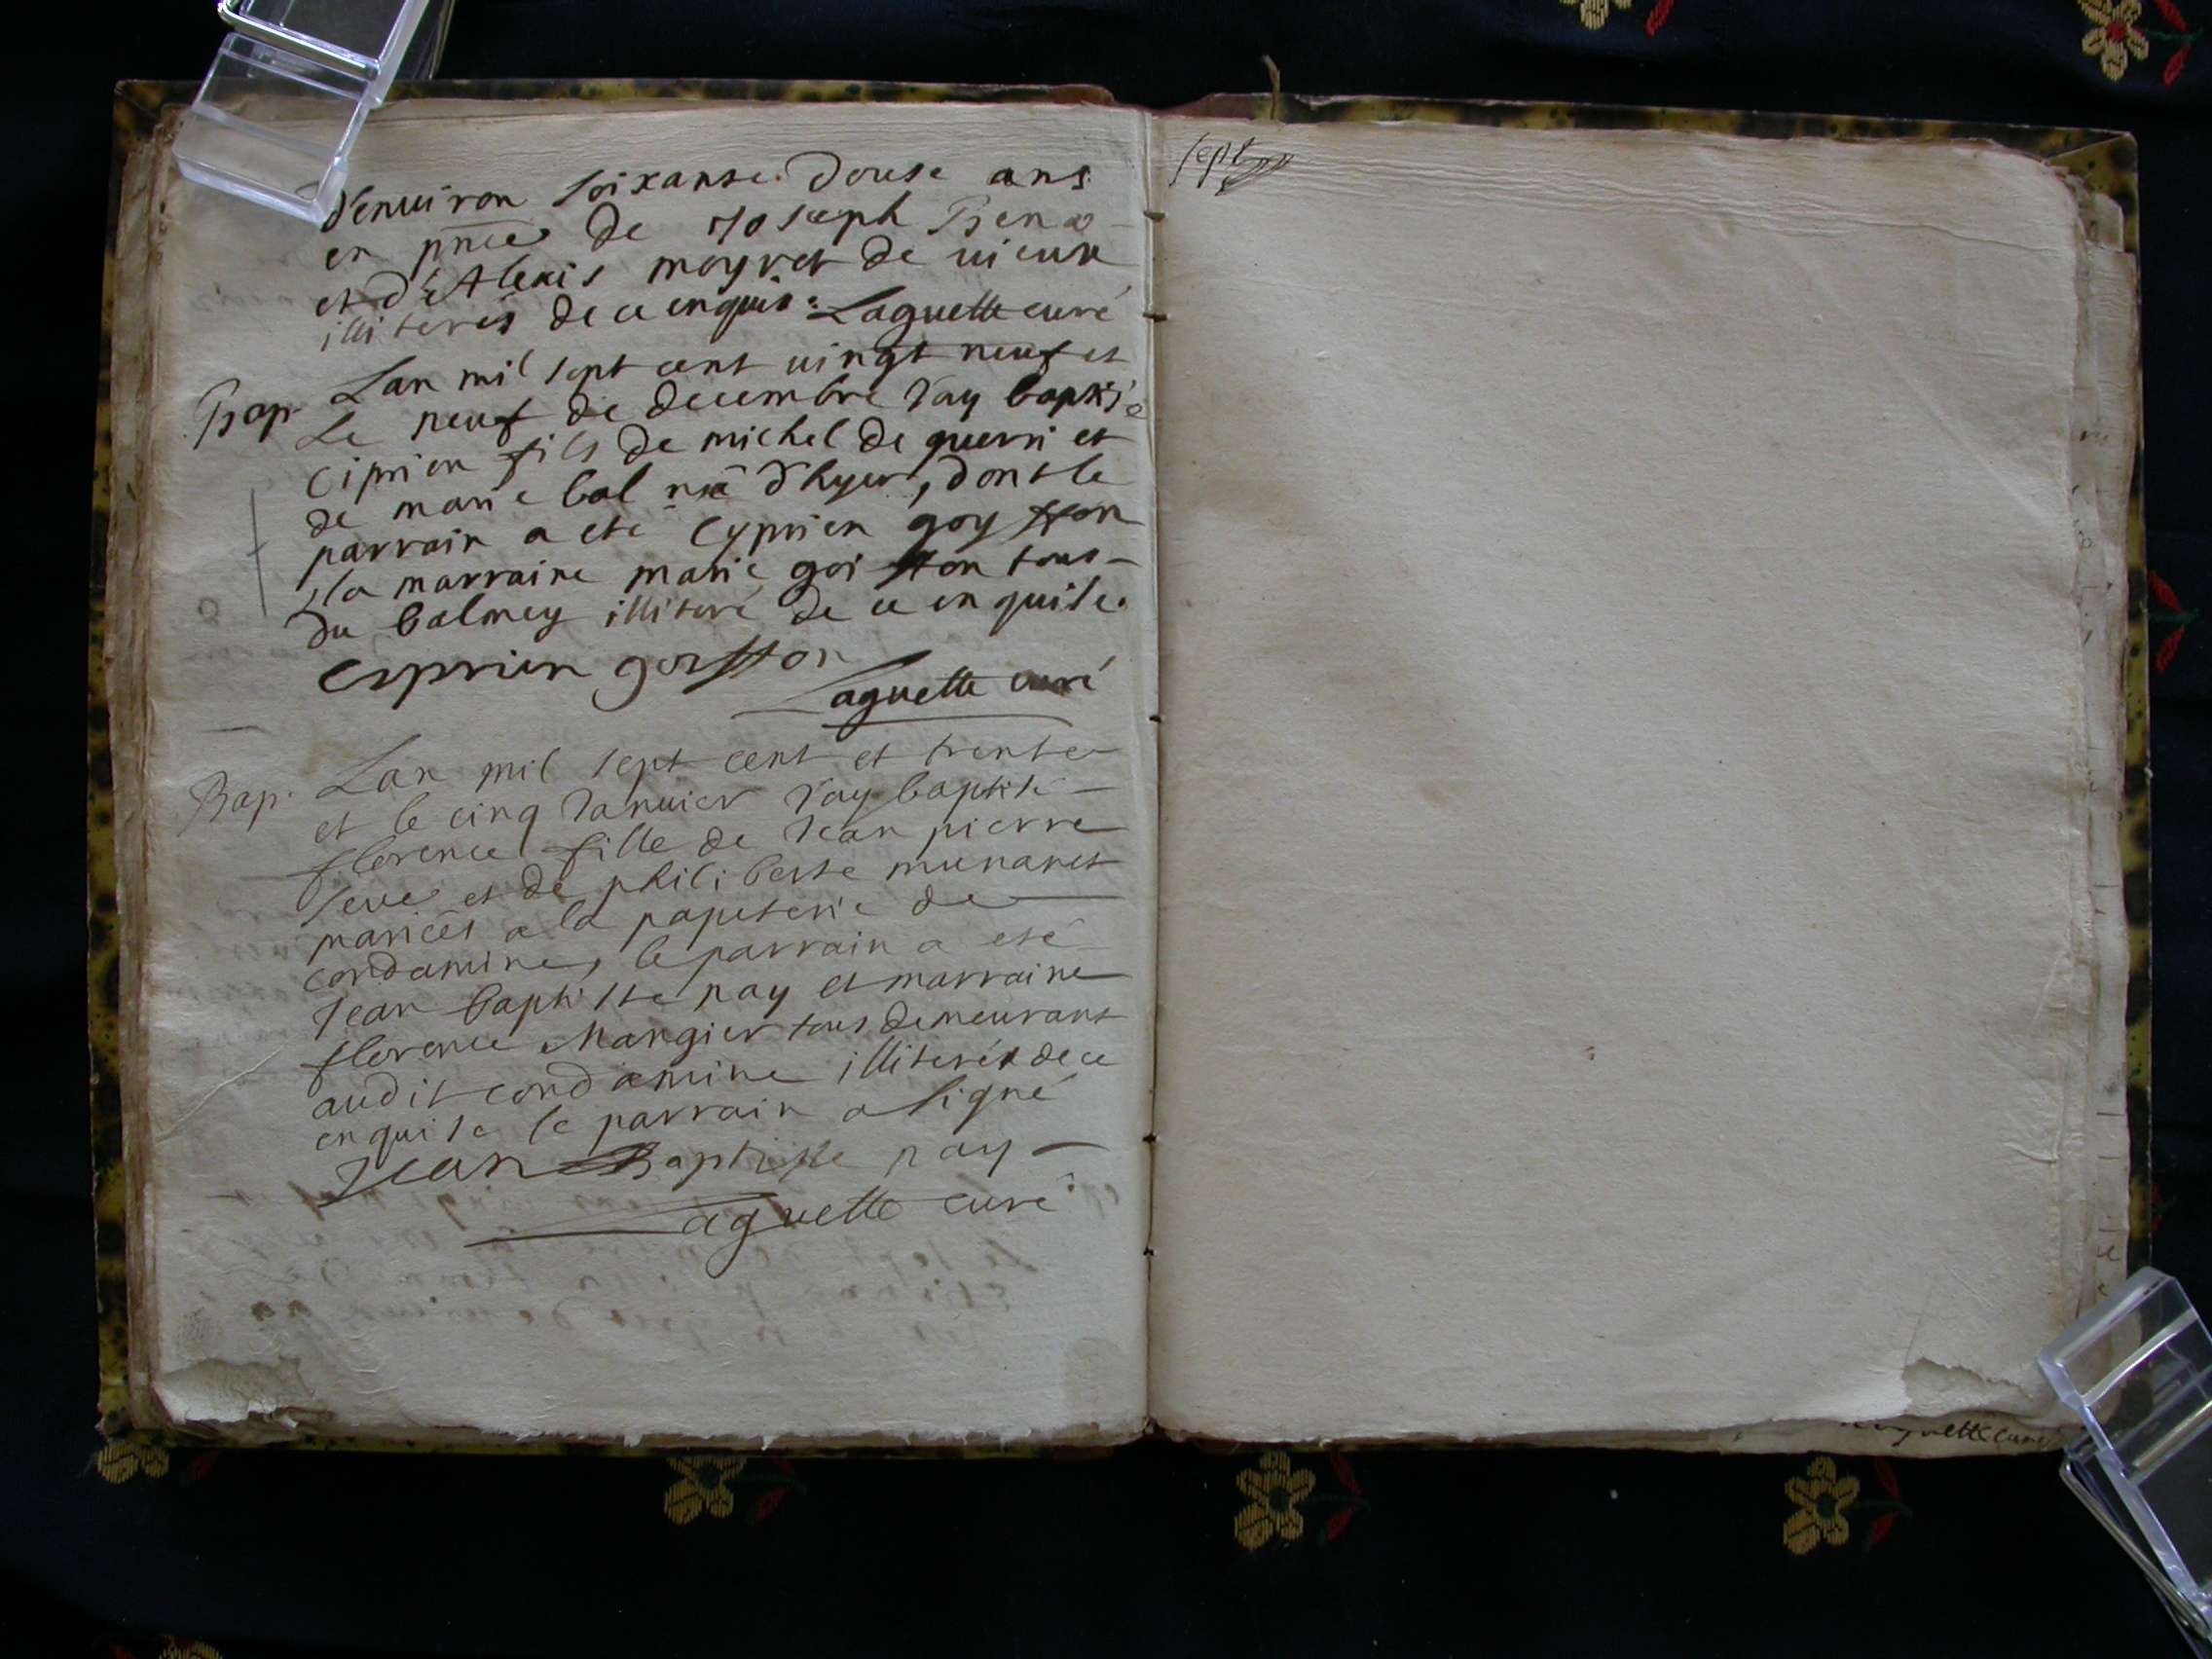 d'enuiron soixante douse ans
en pnce de Joseph Bena
et d'Alexis moyret de uieux
illiterés de ce enquis. Laguette curé
Bap. Lan mil sept cent uingt neuf et
Le neuf de decembre J'ay baptisé
Ciprien fils de michel de querri et
de marie bal né d'hyer, dont le
parrain a eté Cyprien goy ffon
la marraine marie goi ffon tous
du balmey illiteré de ce enquise.
Cyprien goiffon
Laguette curé
Bap. Lan mil sept cent et trente
et le cinq Januier J'ay baptisé
florence fille de Jean pierre
seue et de philiberte munaret
mariées a la papeterie de
condamine, le parrain a eté
Jean baptiste pay et marraine
florence Mangier tous demeurant
audit condamine illiterés de ce
enquise le parrain a signé
Jean Baptiste pay
Laguette curé
sept